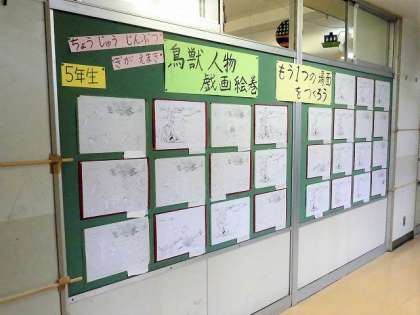 ちょうじゅうじんぶつ
ぎがえまき
5年生
鳥獣人物
戯画絵巻
もう1つの場面
をつくろう